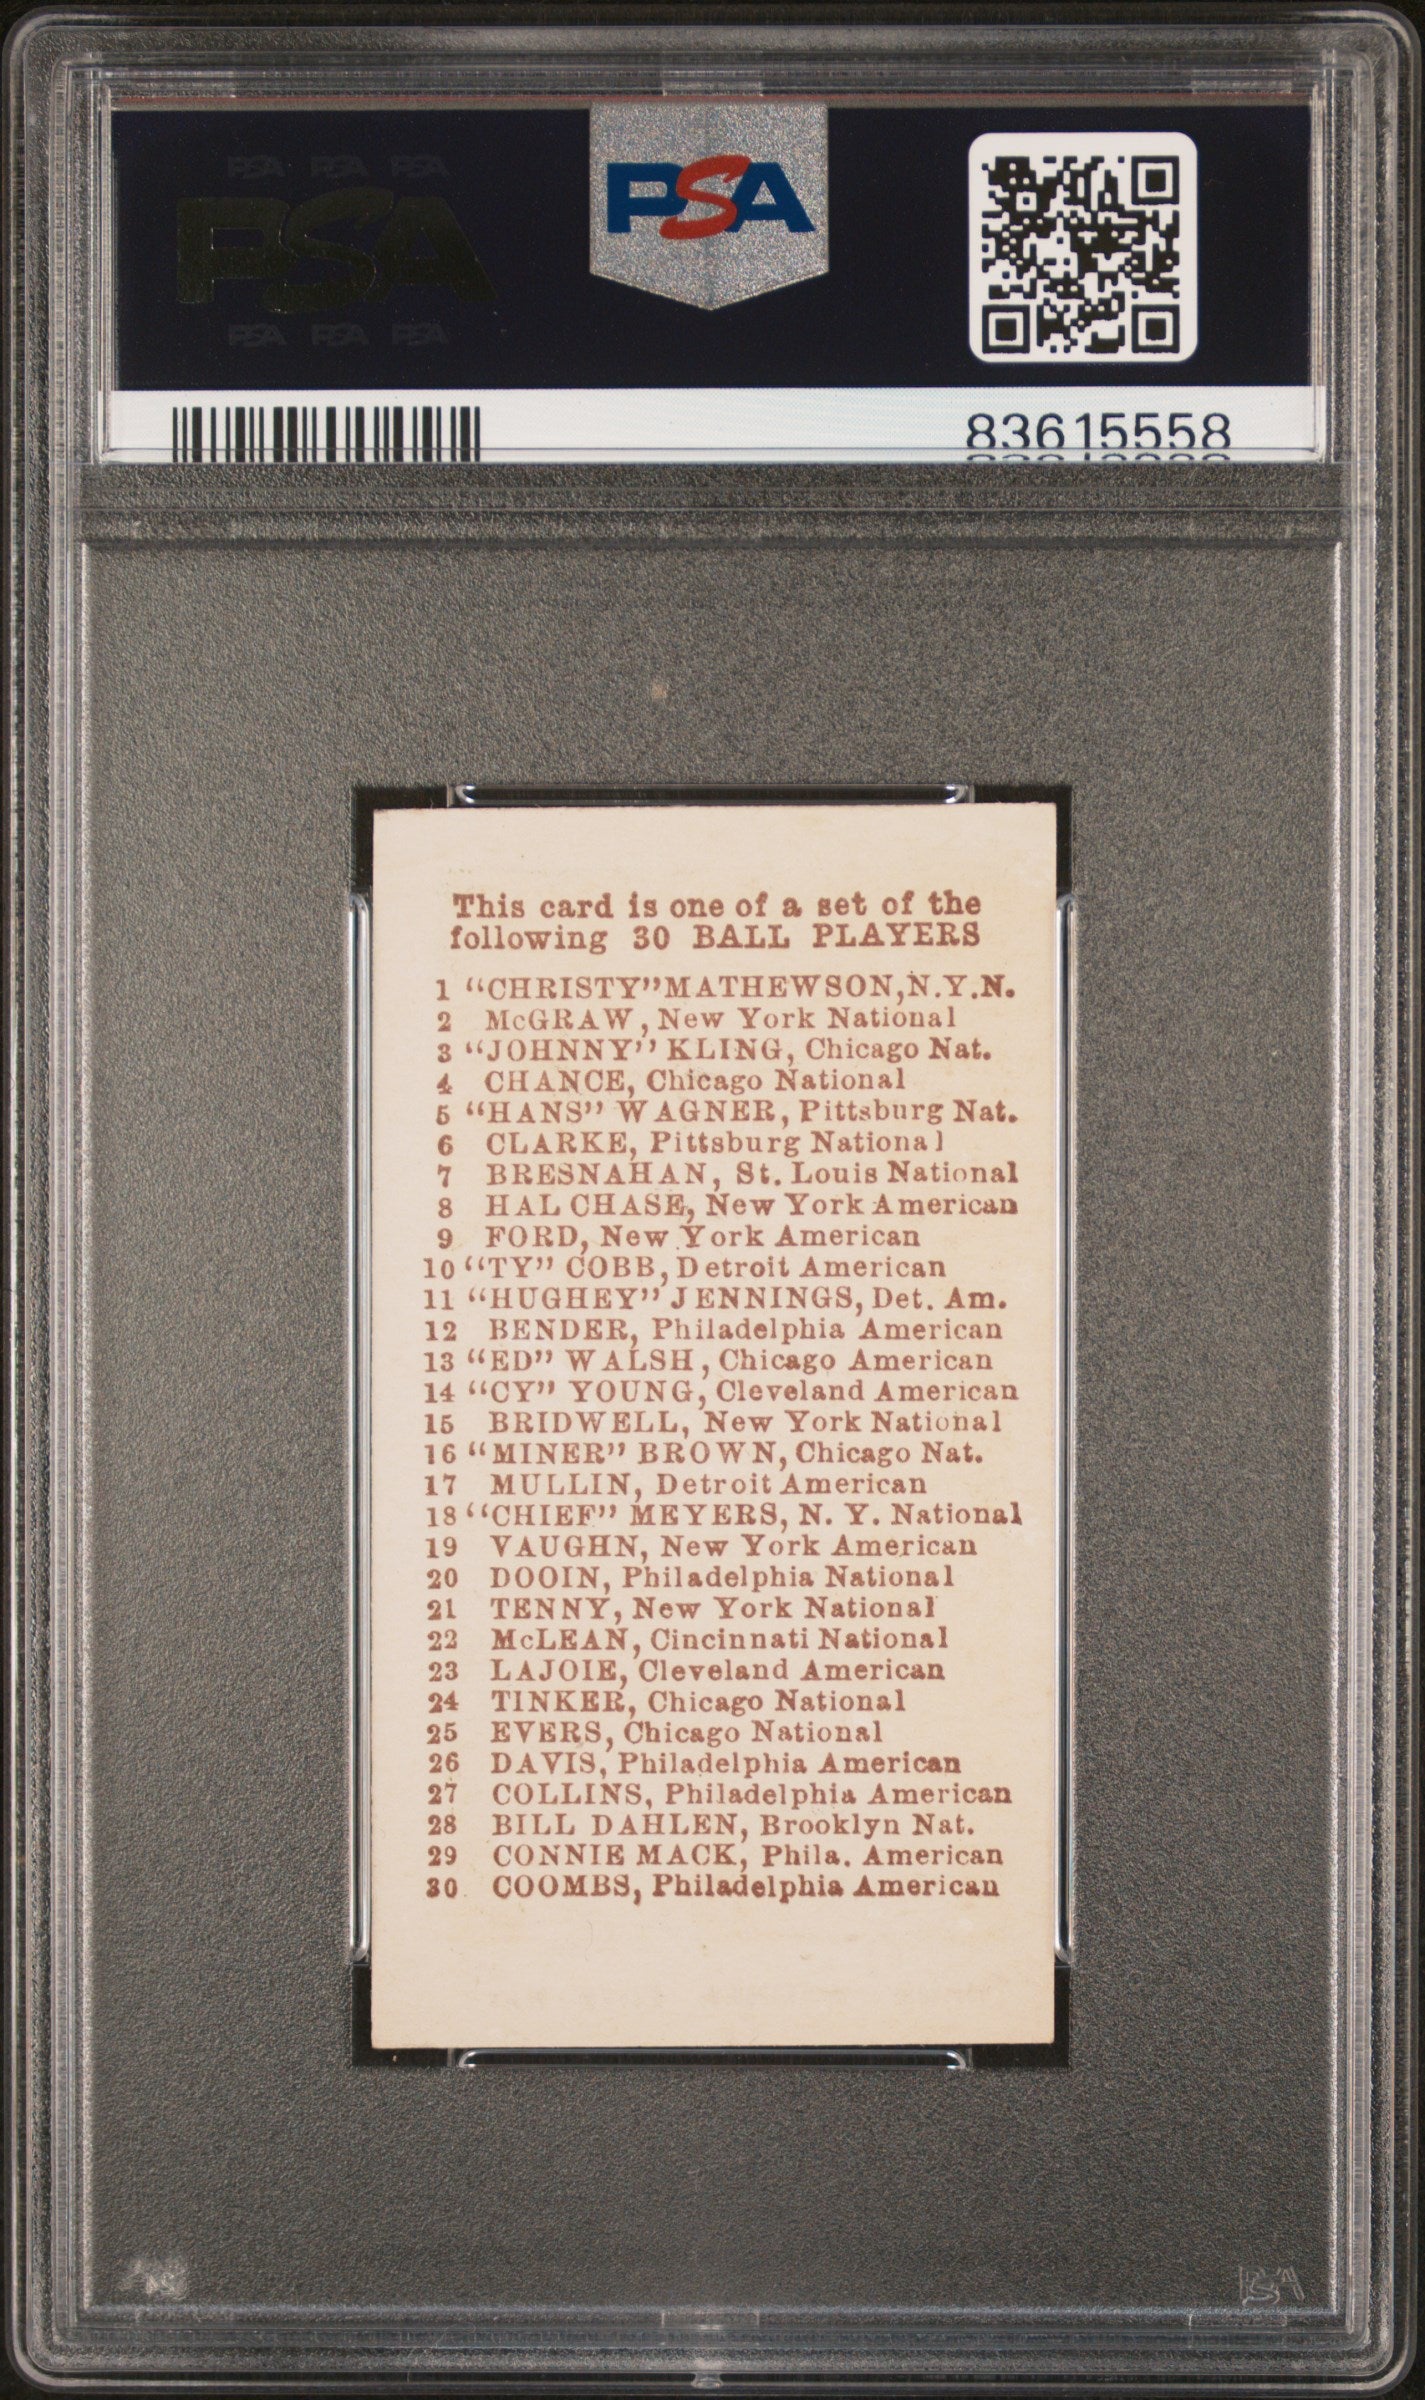 PSA PSA PSA
PSA
PSA PSA PSA
PSA
83615558
This card is one of a set of the
following 30 BALL PLAYERS
1 “CHRISTY” MATHEWSON, N.Y.N.
2 McGRAW, New York National
3 “JOHNNY” KLING, Chicago Nat.
4 CHANCE, Chicago National
5 “HANS” WAGNER, Pittsburg Nat.
6 CLARKE, Pittsburg National
7 BRESNAHAN, St. Louis National
8 HAL CHASE, New York American
9 FORD, New York American
10 “TY” COBB, Detroit American
11 “HUGHEY” JENNINGS, Det. Am.
12 BENDER, Philadelphia American
13 “ED” WALSH, Chicago American
14 “CY” YOUNG, Cleveland American
15 BRIDWELL, New York National
16 “MINER” BROWN, Chicago Nat.
17 MULLIN, Detroit American
18 “CHIEF” MEYERS, N. Y. National
19 VAUGHN, New York American
20 DOOIN, Philadelphia National
21 TENNY, New York National
22 McLEAN, Cincinnati National
23 LAJOIE, Cleveland American
24 TINKER, Chicago National
25 EVERS, Chicago National
26 DAVIS, Philadelphia American
27 COLLINS, Philadelphia American
28 BILL DAHLEN, Brooklyn Nat.
29 CONNIE MACK, Phila. American
30 COOMBS, Philadelphia American
PSA